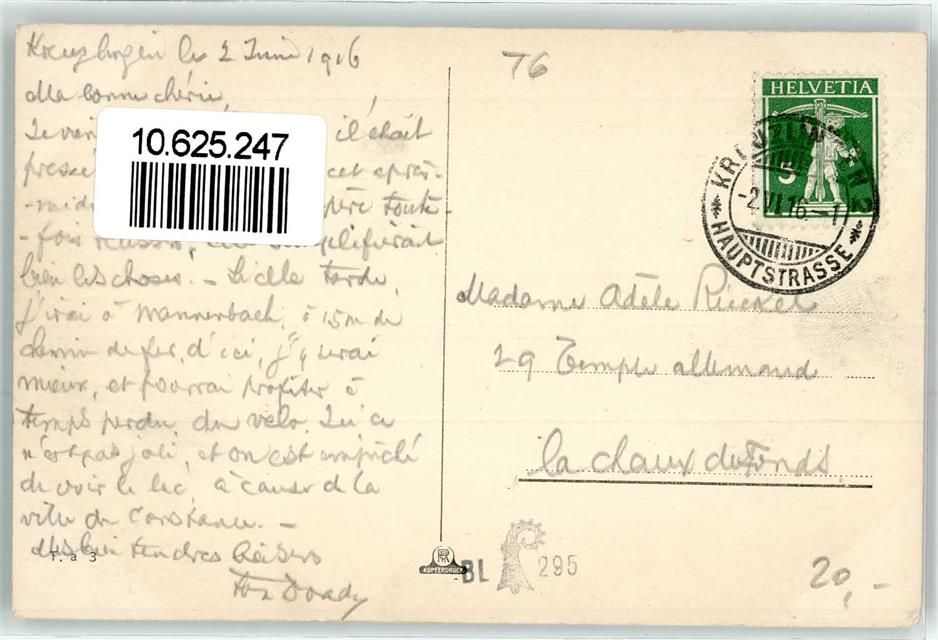 Kreuzlingen le 2 Juin 1916
76
Ma bonne chérie,
il était
presse cet après-
-midi père toute-
-fois réussir, simplifierait
bien les choses. – Si elle tarde,
j'irai à Mannenbach, à 15m de
chemin de fer, d'ici, j'y serai
mieux, et pourrai profiter à
temps perdu du vélo. Ici ce
n'est pas joli, et on est empêché
de voir le lac, à cause de la
ville de Constance. –
Mes bien tendres baisers
Ton Doady
T. a 3
10.625.247
HELVETIA
5
KREUZLINGEN 2
-2.VI.16.-1
* HAUPTSTRASSE *
Madame Adèle Rickel
29 Temple allemand
La Chaux de Fonds
KUPFERDRUCK
BL 295
20,-